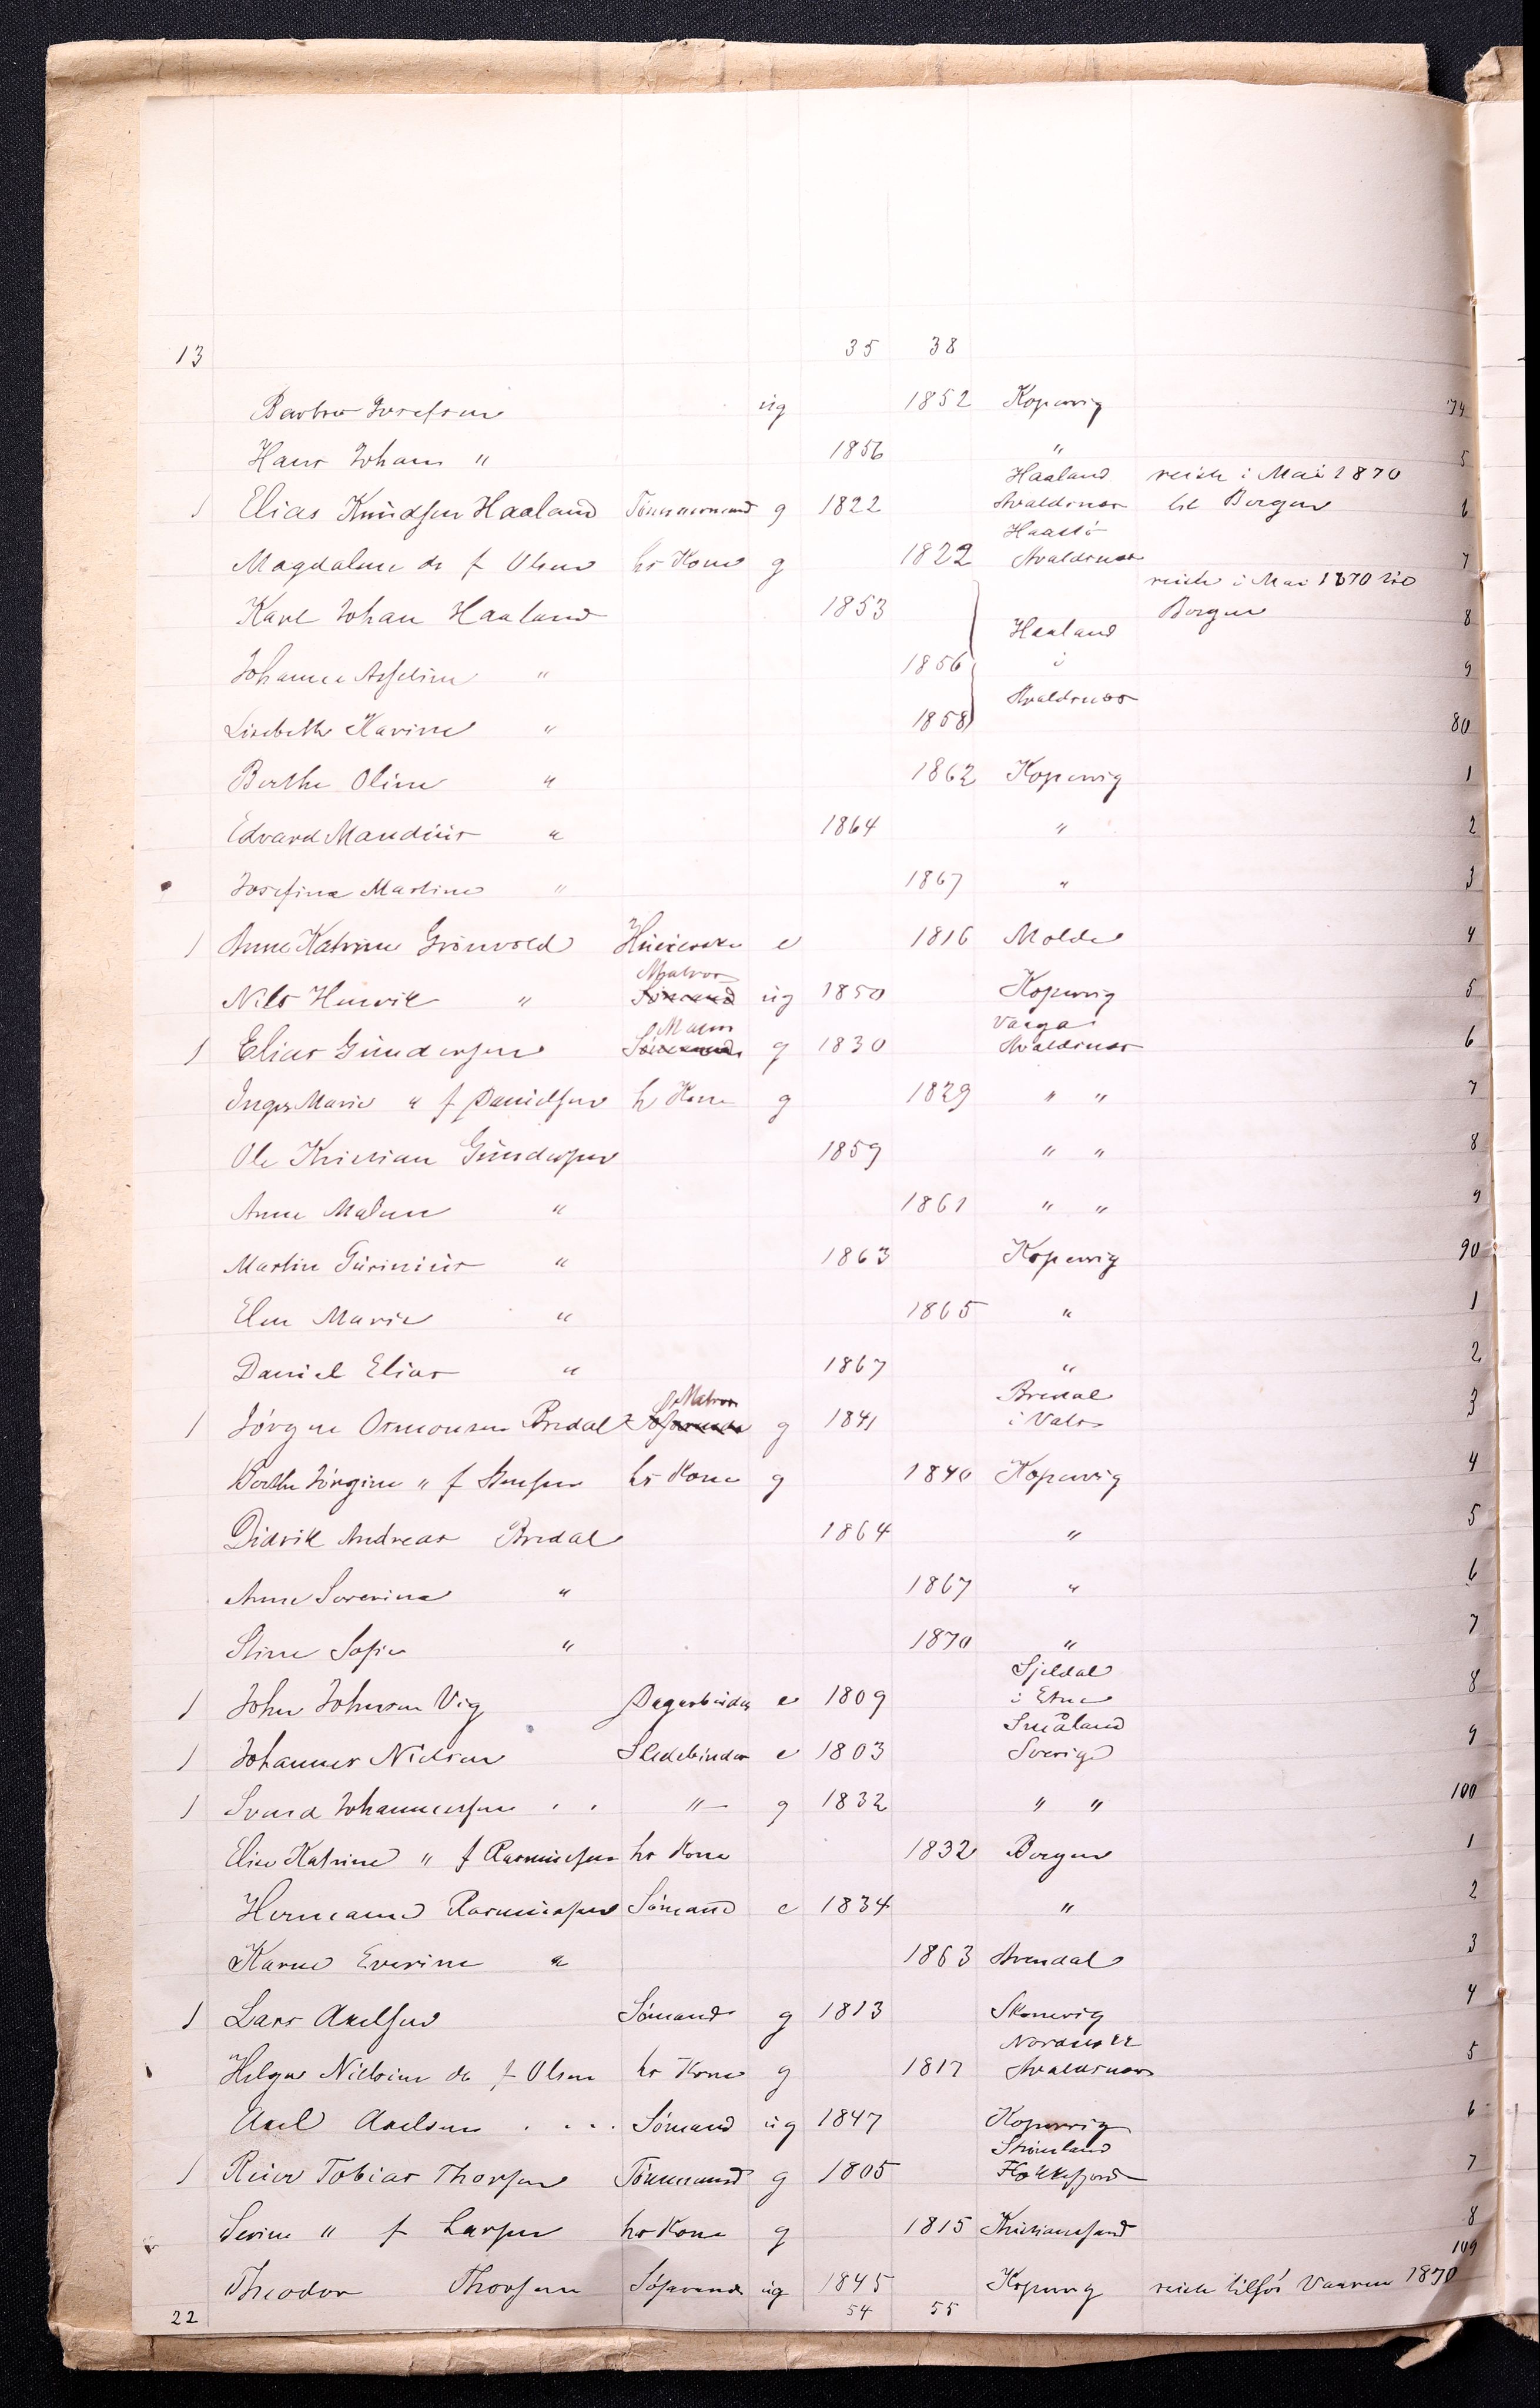 13 35 38
Josefsen ug 1852 Kopervig 74
Hans Johan " 1856 " 5
Haaland reiste i Mai 1870
1 Elias Knudsen Haaland Tømmermand g 1822 Avaldsnæs til Bergen 6
Magdalene do f Olsen hs Kone g 1822 Avaldsnæs 7
reiste i Mai 1870 til
Karl Johan Haaland 1853 Bergen 8
Haaland
Johanne " 1856 i 9
Avaldsnæs
Lisebeth Karine " 1858 80
Berthe Oline " 1862 Kopervig 1
Edvard Mandius " 1864 " 2
Josefine Martine " 1867 " 3
1 Anne Katrine Grønvold e 1816 Molde 4
Matros
Nils Henrik " Sømand ug 1850 Kopervig 5
1 Elias Gundersen g 1830 Avaldsnæs 6
Inger Marie " f Danielsen hs Kone g 1829 " " 7
Ole Kristian Gundersen 1859 " " 8
Anne Malene " 1861 " " 9
Martin " 1863 Kopervig 90
Elen Marie " 1865 " 1
Daniel Elias " 1867 " 2
Matros Bredal
1 Jørgen Osmonsen Bredal g 1841 i Vats 3
Berthe Jørgine " f hs Kone g 1840 Kopervig 4
Didrik Andreas Bredal 1864 " 5
Anne Severine " 1867 " 6
Stine Sofie " 1870 " 7
1 John Johnsen Vig Dagarbeider e 1809 i Etne 8
Småland
1 Johannes Nielsen e 1803 Sverige 9
1 Svend Johannessen . . " g 1832 " " 100
Elise Katrine " f Rasmussen hs Kone 1832 Bergen 1
Hermand Rasmussen Sømand e 1834 " 2
Karen Everine " 1863 Arendal 3
1 Lars Axelsen Sømand g 1813 Skonevig 4
Helga Nielsine do f Olsen hs Kone g 1817 Avaldsnæs 5
Axel Axelsen . . . . Sømand ug 1847 Kopervig 6
1 Reier Tobias Thorsen Tømmermand g 1805 Flekkefjord 7
Serine " f Larsen hs Kone g 1815 Kristiansand 8
109
Theodor Thorsen Søfarende ug 1845 Kopervig reiste tilsjøs Vaaren 1870
22 54 55